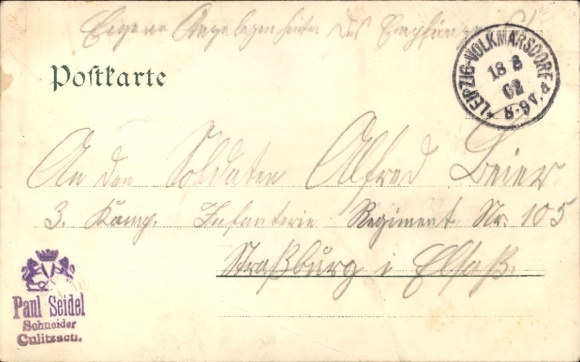 Eigene Angelegenheiten des Empfängers
Postkarte
LEIPZIG-VOLKMARSDORF
18 8
02
8-9V.
An den Soldaten Alfred Beier
3. Komp. Infanterie Regiment Nr. 105
Straßburg i Elsaß.
Paul Seidel
Schneider
Culitzsch.